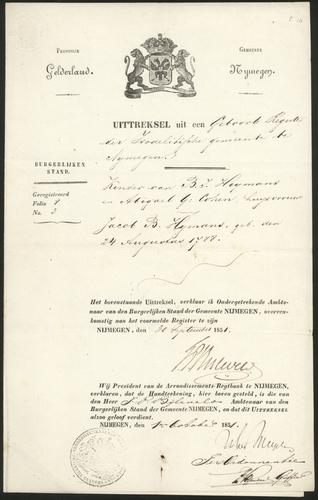 PROVINCIE
Gelderland.
GEMEENTE
Nymegen.
UITTREKSEL uit een Geboorte Register
der Israelitische gemeente te
Nymegen.
BURGERLIJKEN
STAND.
Geregistreerd
Folio 8
No. 3
Kinder van B. J. Heymans
en Abigael G. Cohen huisvrouw
Jacob B. Hymans, geb. den
24 Augustus 1788.
Het bovenstaande Uittreksel, verklaar ik Ondergeteekende Ambte-
naar van den Burgerlijken Stand der Gemeente NIJMEGEN, overeen-
komstig aan het voormelde Register te zijn
NIJMEGEN, den 30 September 1851.
Wij President van de Arrondissements-Regtbank te NIJMEGEN,
verklaren, dat de Handteekening, hier boven gesteld, is die van
den Heer Ambtenaar van den
Burgerlijken Stand der Gemeente NIJMEGEN, en dat dit UITTREKSEL
alzoo geloof verdient.
NIJMEGEN, den 1 October 1851.
Ter Ordonnantie